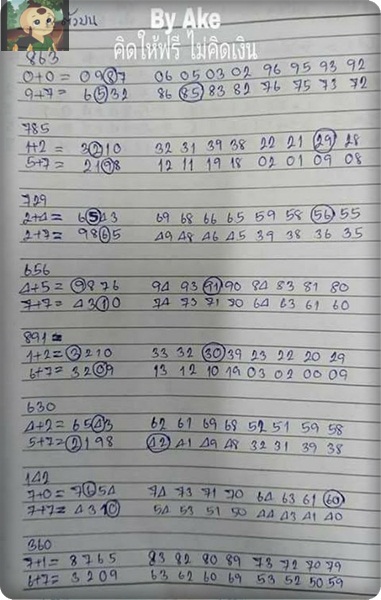 By Ake
คิดให้ฟรี ไม่คิดเงิน
863
0+0 = 0987 06 05 03 02 96 95 93 92
9+7= 6532 86 85 83 82 76 75 73 72
785
1+2 = 3210 32 31 39 38 22 21 29 28
5+7= 2198 12 11 19 18 02 01 09 08
729
2+4= 6543 69 68 66 65 59 58 56 55
2+7= 9865 49 48 46 45 39 38 36 35
656
4+5 = 9876 94 93 91 90 84 83 81 80
7+7= 4310 74 73 71 70 64 63 61 60
891=
1+2= 3210 33 32 30 39 23 22 20 29
6+7= 3209 13 12 10 19 03 02 00 09
630
4+2= 6543 62 61 69 68 52 51 59 58
5+7= 2198 42 41 49 48 32 31 39 38
142
7+0= 7654 74 73 71 70 64 63 61 60
7+7= 4310 54 53 51 50 44 43 41 40
360
7+1= 8765 83 82 80 89 73 72 70 79
6+7= 3209 63 62 60 69 53 52 50 59